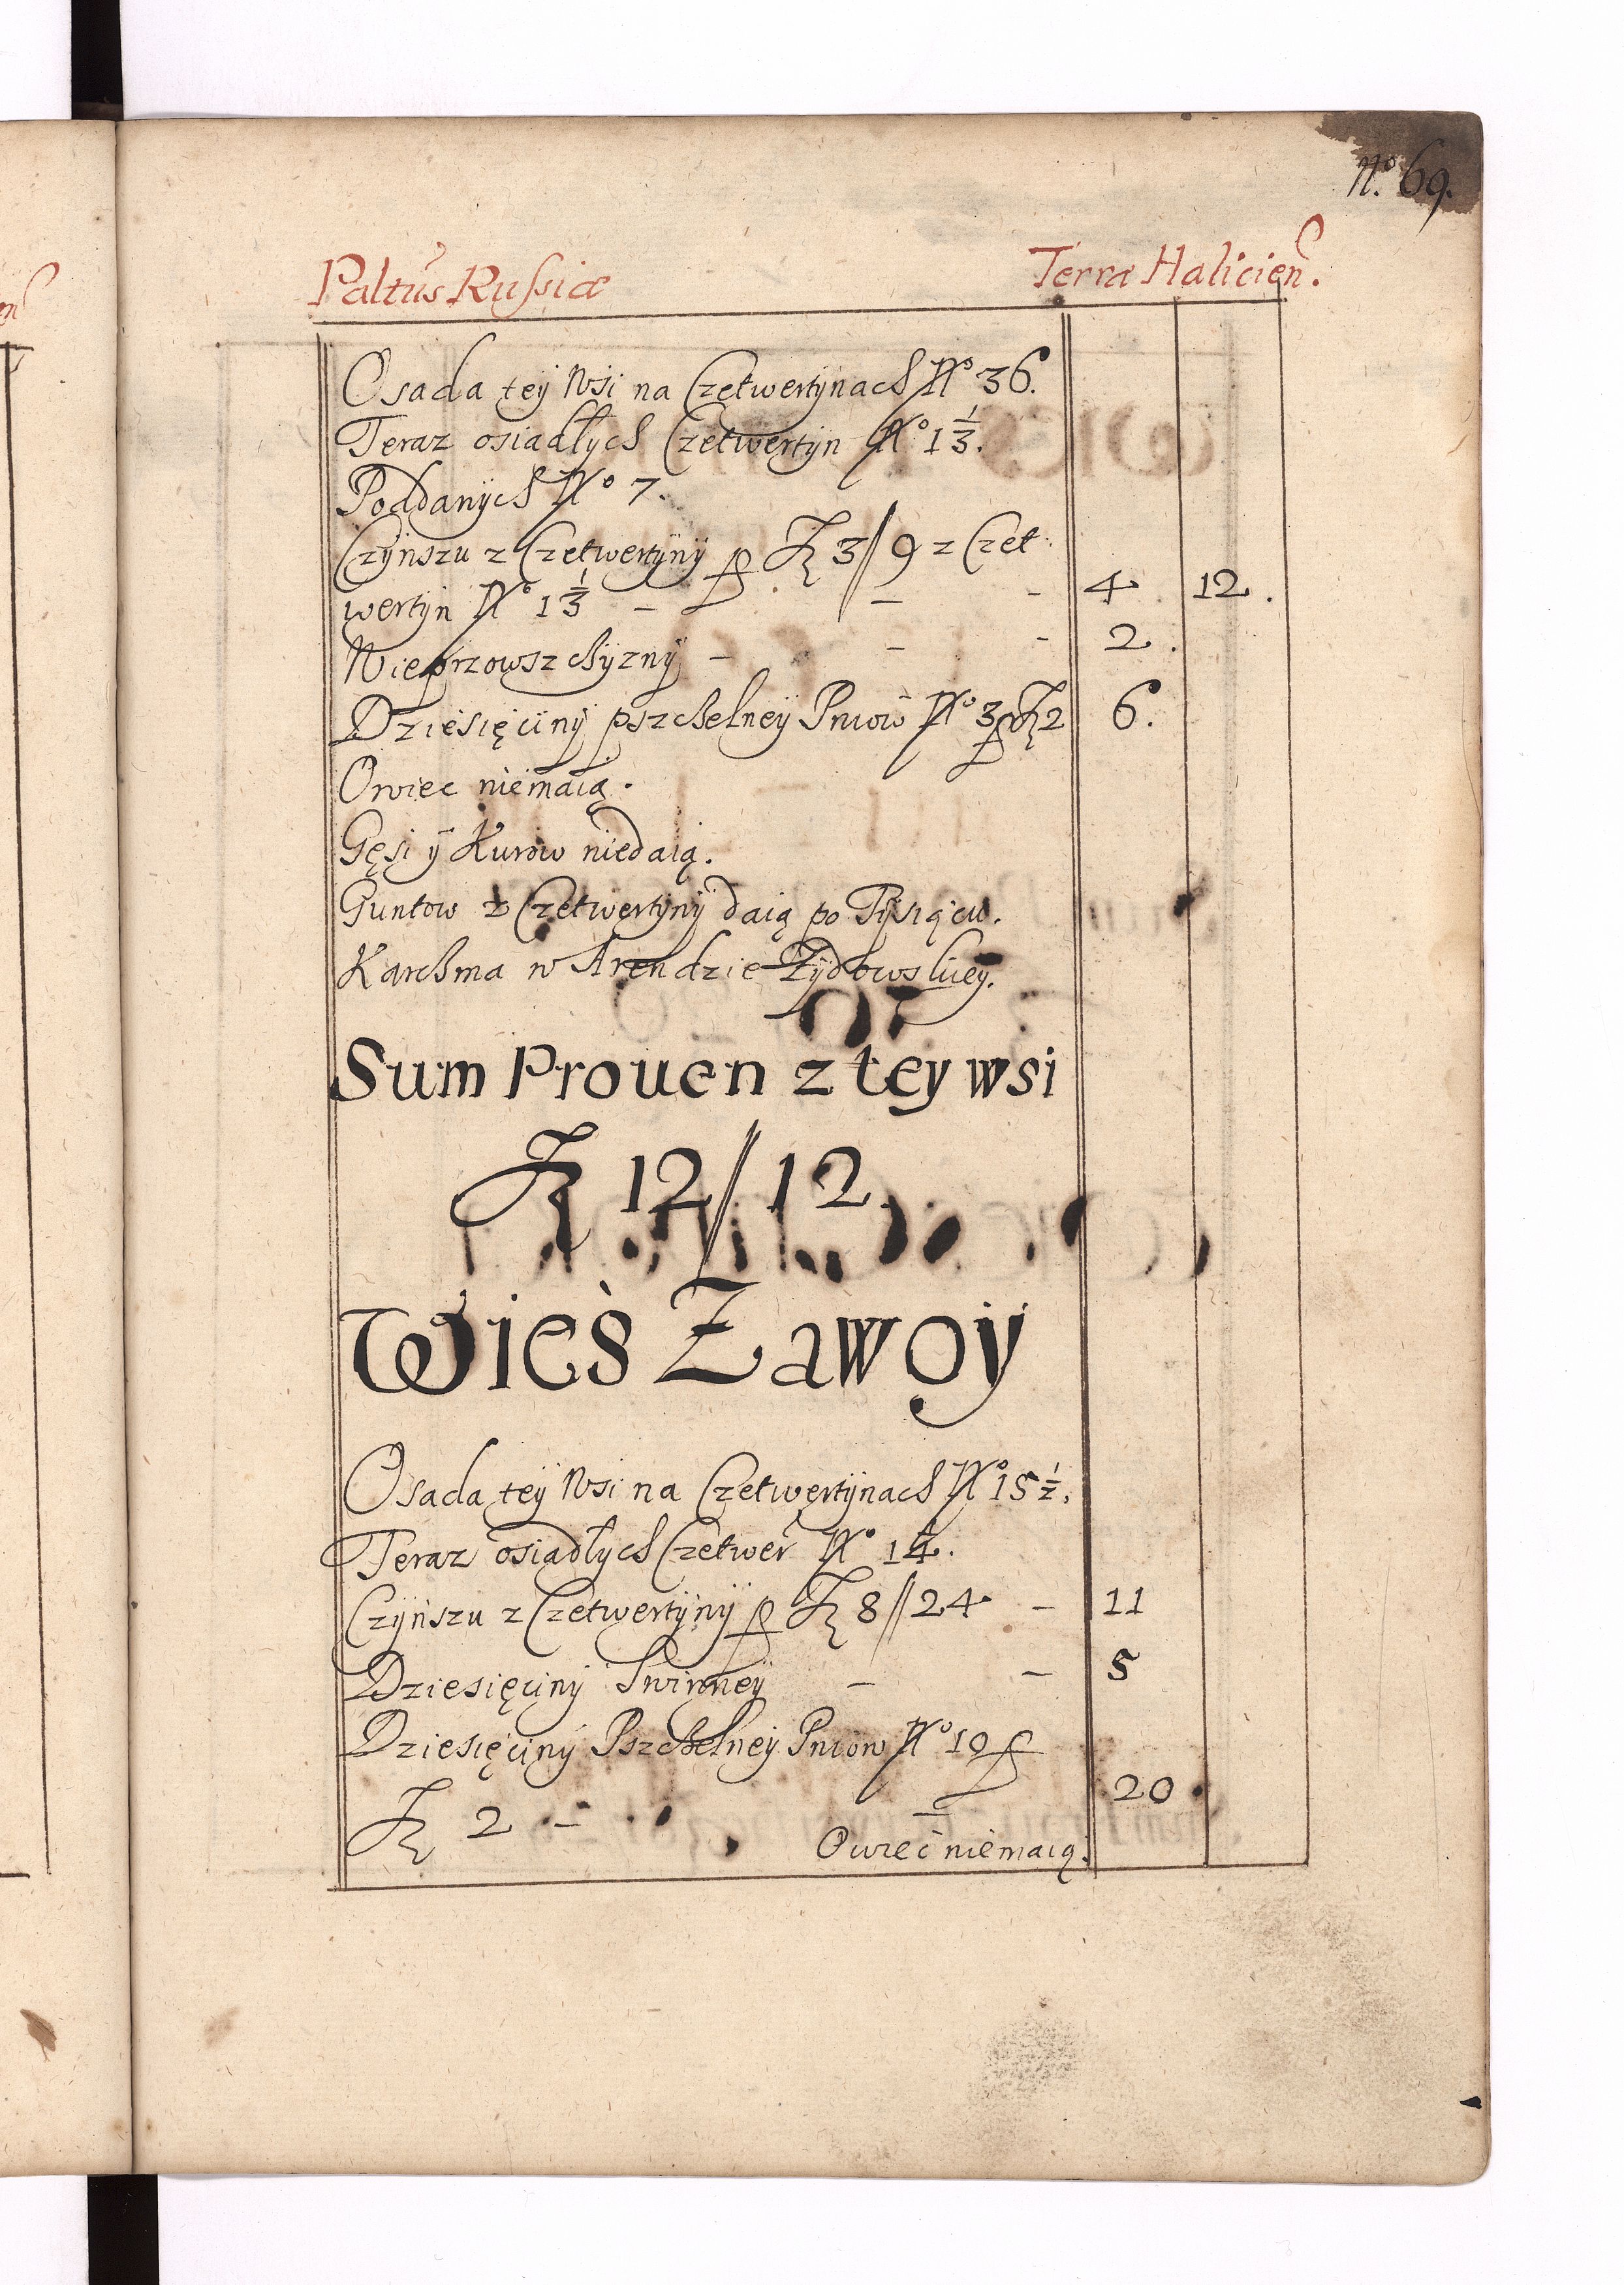 No. 69.
Paltus Russiæ Terræ Halicien.
Osada tey Wsi na Czetwertynach No 36.
Teraz osiadłych Czetwertyn No 1 1/3.
Poddanych No 7.
Czynszu z Czetwertyny p Fl 3//9 z Czet:
wertyn No 1 1/3 - - - 4 12.
Wieprzowszchyzny - - - 2.
Dziesięciny pszchelney Pniow No 3 p Fl 2 6.
Owiec niemaią.
Gęsi y Kurow niedaią.
Guntow z Czetwertyny daią po Tysiącu.
Karchma w Arendzie Zydowskiey.
Sum Prouen z tey wsi
Fl 12//12
Wieś Zawoy
Osada tey Wsi na Czetwertynach No 15 1/2.
Teraz osiadłych Czetwer No
Czynszu z Czetwertyny p Fl 8//24 - 11
Dziesięciny Swinney - - 5
Dziesięciny Pszchelney Pniow No 10 p
Fl 2 - - 20
Owiec niemaią.